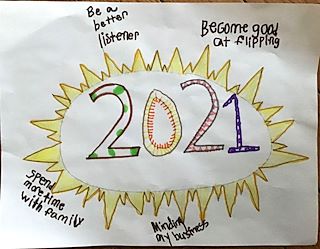 Be a
better
listener
Become good
at flipping
2021
spend
more time
with family
Minding
my business